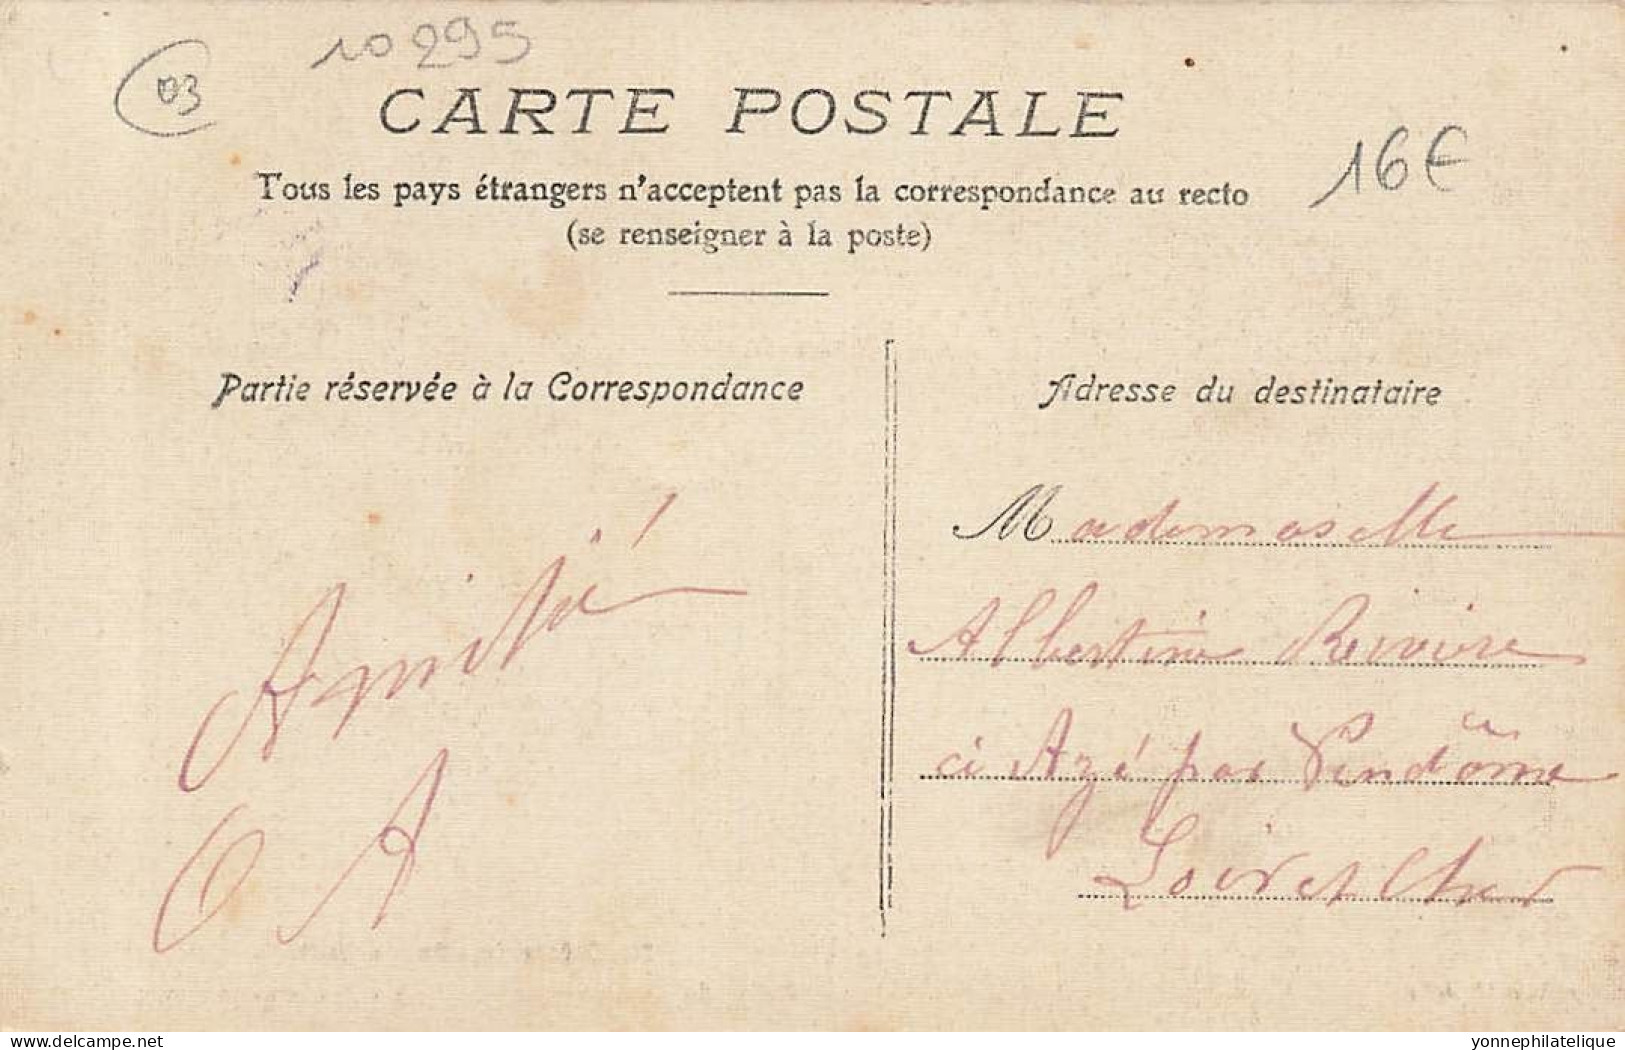 10295
03
CARTE POSTALE
16€
Tous les pays étrangers n'acceptent pas la correspondance au recto
(se renseigner à la poste)
Partie réservée à la Correspondance
Adresse du destinataire
Amitié
A
Mademoselle
Albertine Riviere
Azé par Vendôme
Loir et Cher
delcampe.net
yonnephilatelique